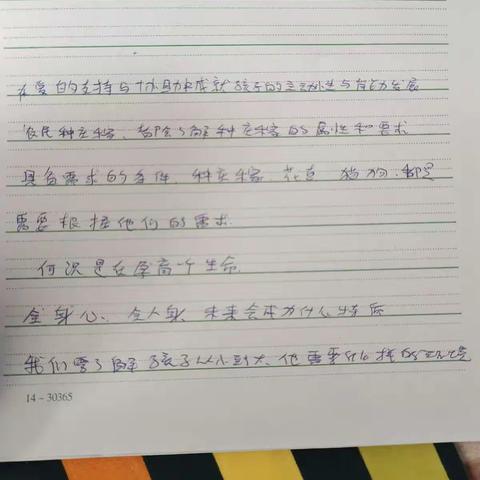 在爱的支持与协助成就孩子的主动性与能力发展
农民种庄稼、都会了解种庄稼的属性和要求
具备需求的条件、种庄稼、花草、猫狗、都是
需要根据他们的需求.
何况是在孕育一个生命.
全身心、全人身、未来会成为什么
我们要了解孩子从小到大、他需要什么
14-30365